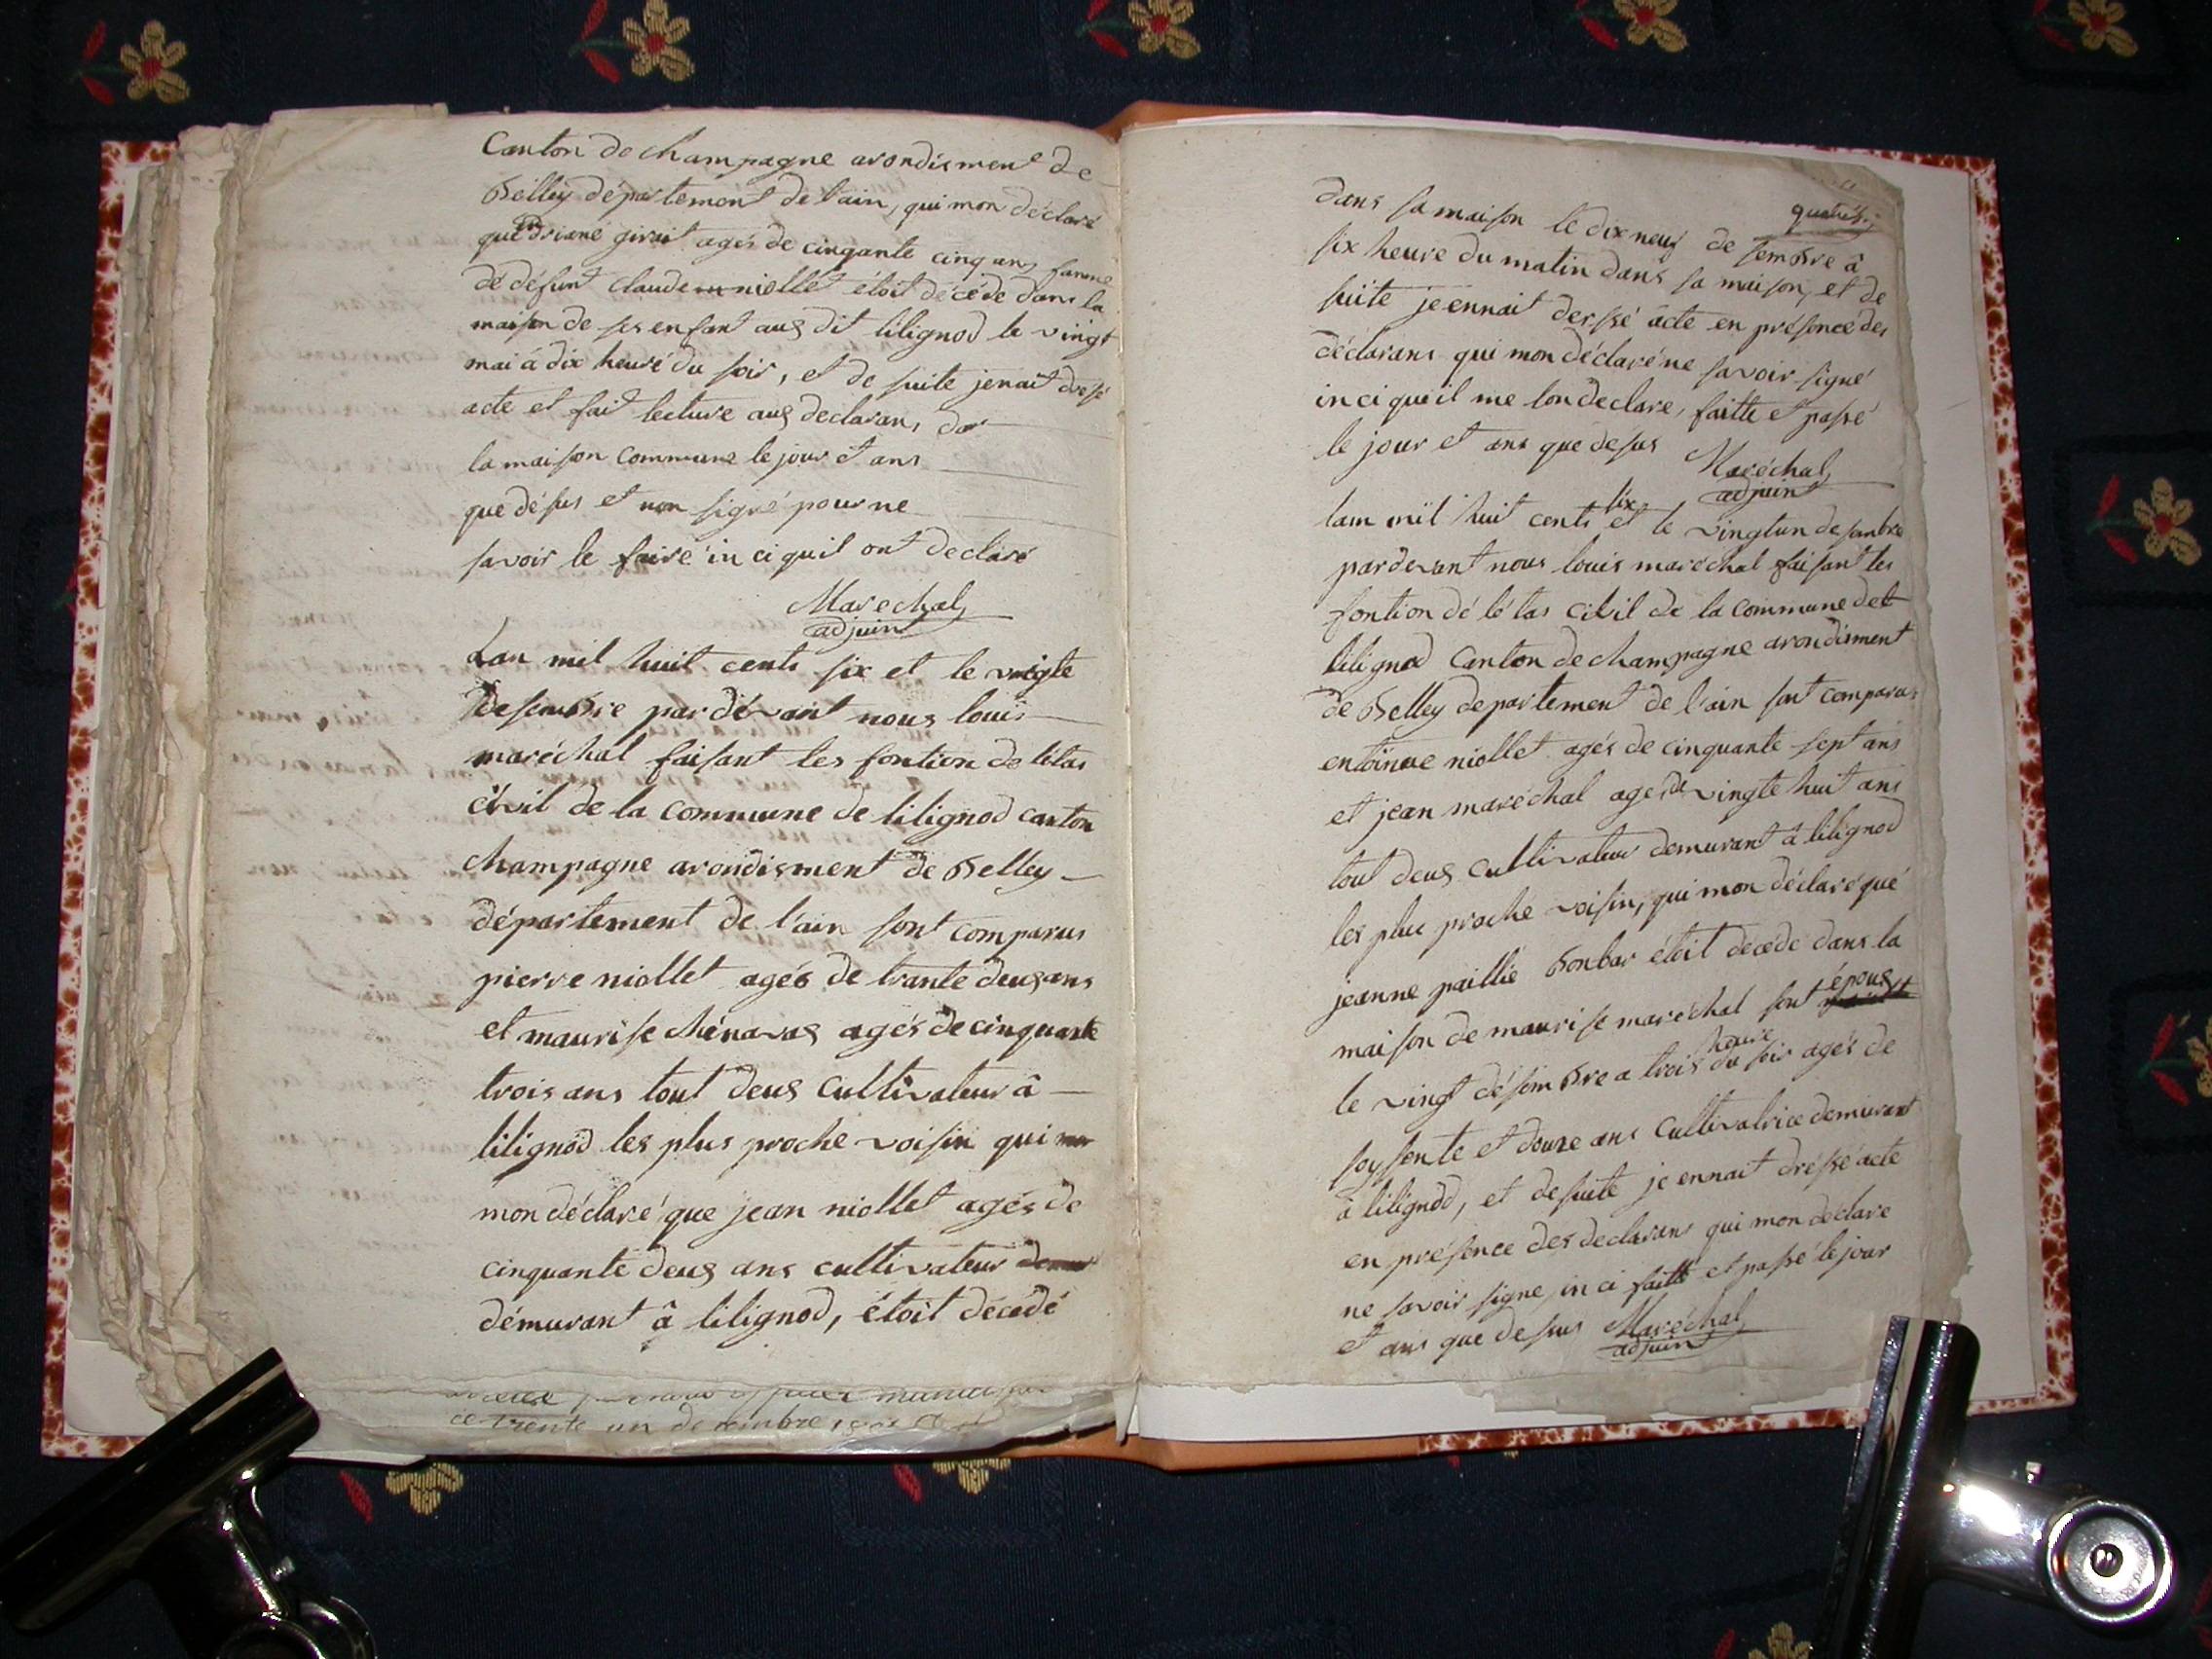 Canton de champagne arondisment de
Belley département de l'ain, qui mon déclaré
que driane girait agés de cinquante cinq ans famme
de défunt claude niollet étoit décéde dans la
maison de ses enfant aus dit lilignod le vingt
mai à dix heuré du soir, et de suite jenait dresé
acte et fait lecture aus declarans
la maison commune le jour et ans
que désus et non signé pour ne
savoir le fairé in ci quil ont declaré
Marechal
adjuint
Lan mil huit cents six et le vingte
desembre pardévant nous louis
maréchal faisant les fontion de létas
civil de la commune de lilignod canton
champagne arondisment de Belley
département de l'ain sont comparus
pierre niollet agés de trante deus ans
et maurise chénavas agés de cinquante
trois ans tout deus cultivateur â
lilignod les plus proche voisin qui
mon déclaré que jean niollet agés de
cinquante deus ans cultivateur
démurant â lilignod, étoit décédé
ce trente un decembre
dans sa maison le dix neuf de sembre â
six heure du matin dans sa maison, et de
suite je ennait derssé acte en présence des
déclarans qui mon déclaré ne savoir signé
in ci que il me lon declare, faitte et passé
le jour et ans que desus
Maréchal
adjuint
lam mil huit cents six et le vingtun desembre
pardevant nous louis maréchal faisant les
fontion dé lé tas civil de la commune det
lilignod Canton de champagne arondisment
de Belley departement de l'ain sont comparus
entoinne niollet agés de cinquante sept ans
et jean maréchal ages de vingte huit ans
tout deus cultivateur demurant â lilignod
les plus proche voisin, qui mon déclaré qué
jeanne paillié Bonbar étoit décéde dans la
maison de maurise maréchal sont épous
le vingt désembre a trois heure du soir agés de
soysente et douze ans cultivatrice demurant
â lilignod, et desuite je ennait dressé acte
en présence des declarans qui mon declare
ne savoir signe, in ci faitte et passé le jour
et ans que desus Maréchal
adjuint